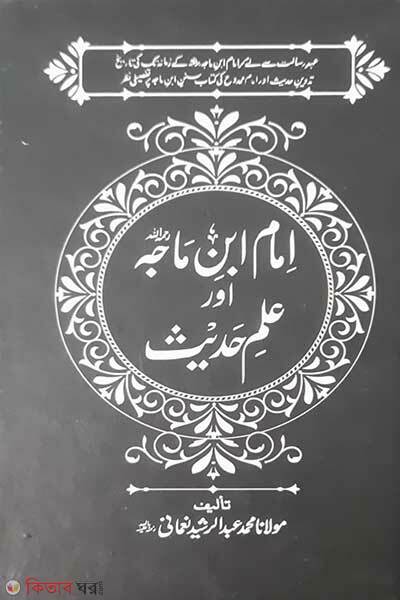 عہد رسالت سے لے کر امام ابن ماجہ رحمہ اللہ کے زمانہ تک کی تاریخ
تدوین حدیث اور امام ممدوح کی کتاب سنن ابن ماجہ پر تفصیلی نظر
اِمام ابنِ مَاجَہ رحمہ اللہ
اور
عِلمِ حَدیث
تألیف
مولانا محمد عبد الرشید نعمانی
কিতাব ঘর